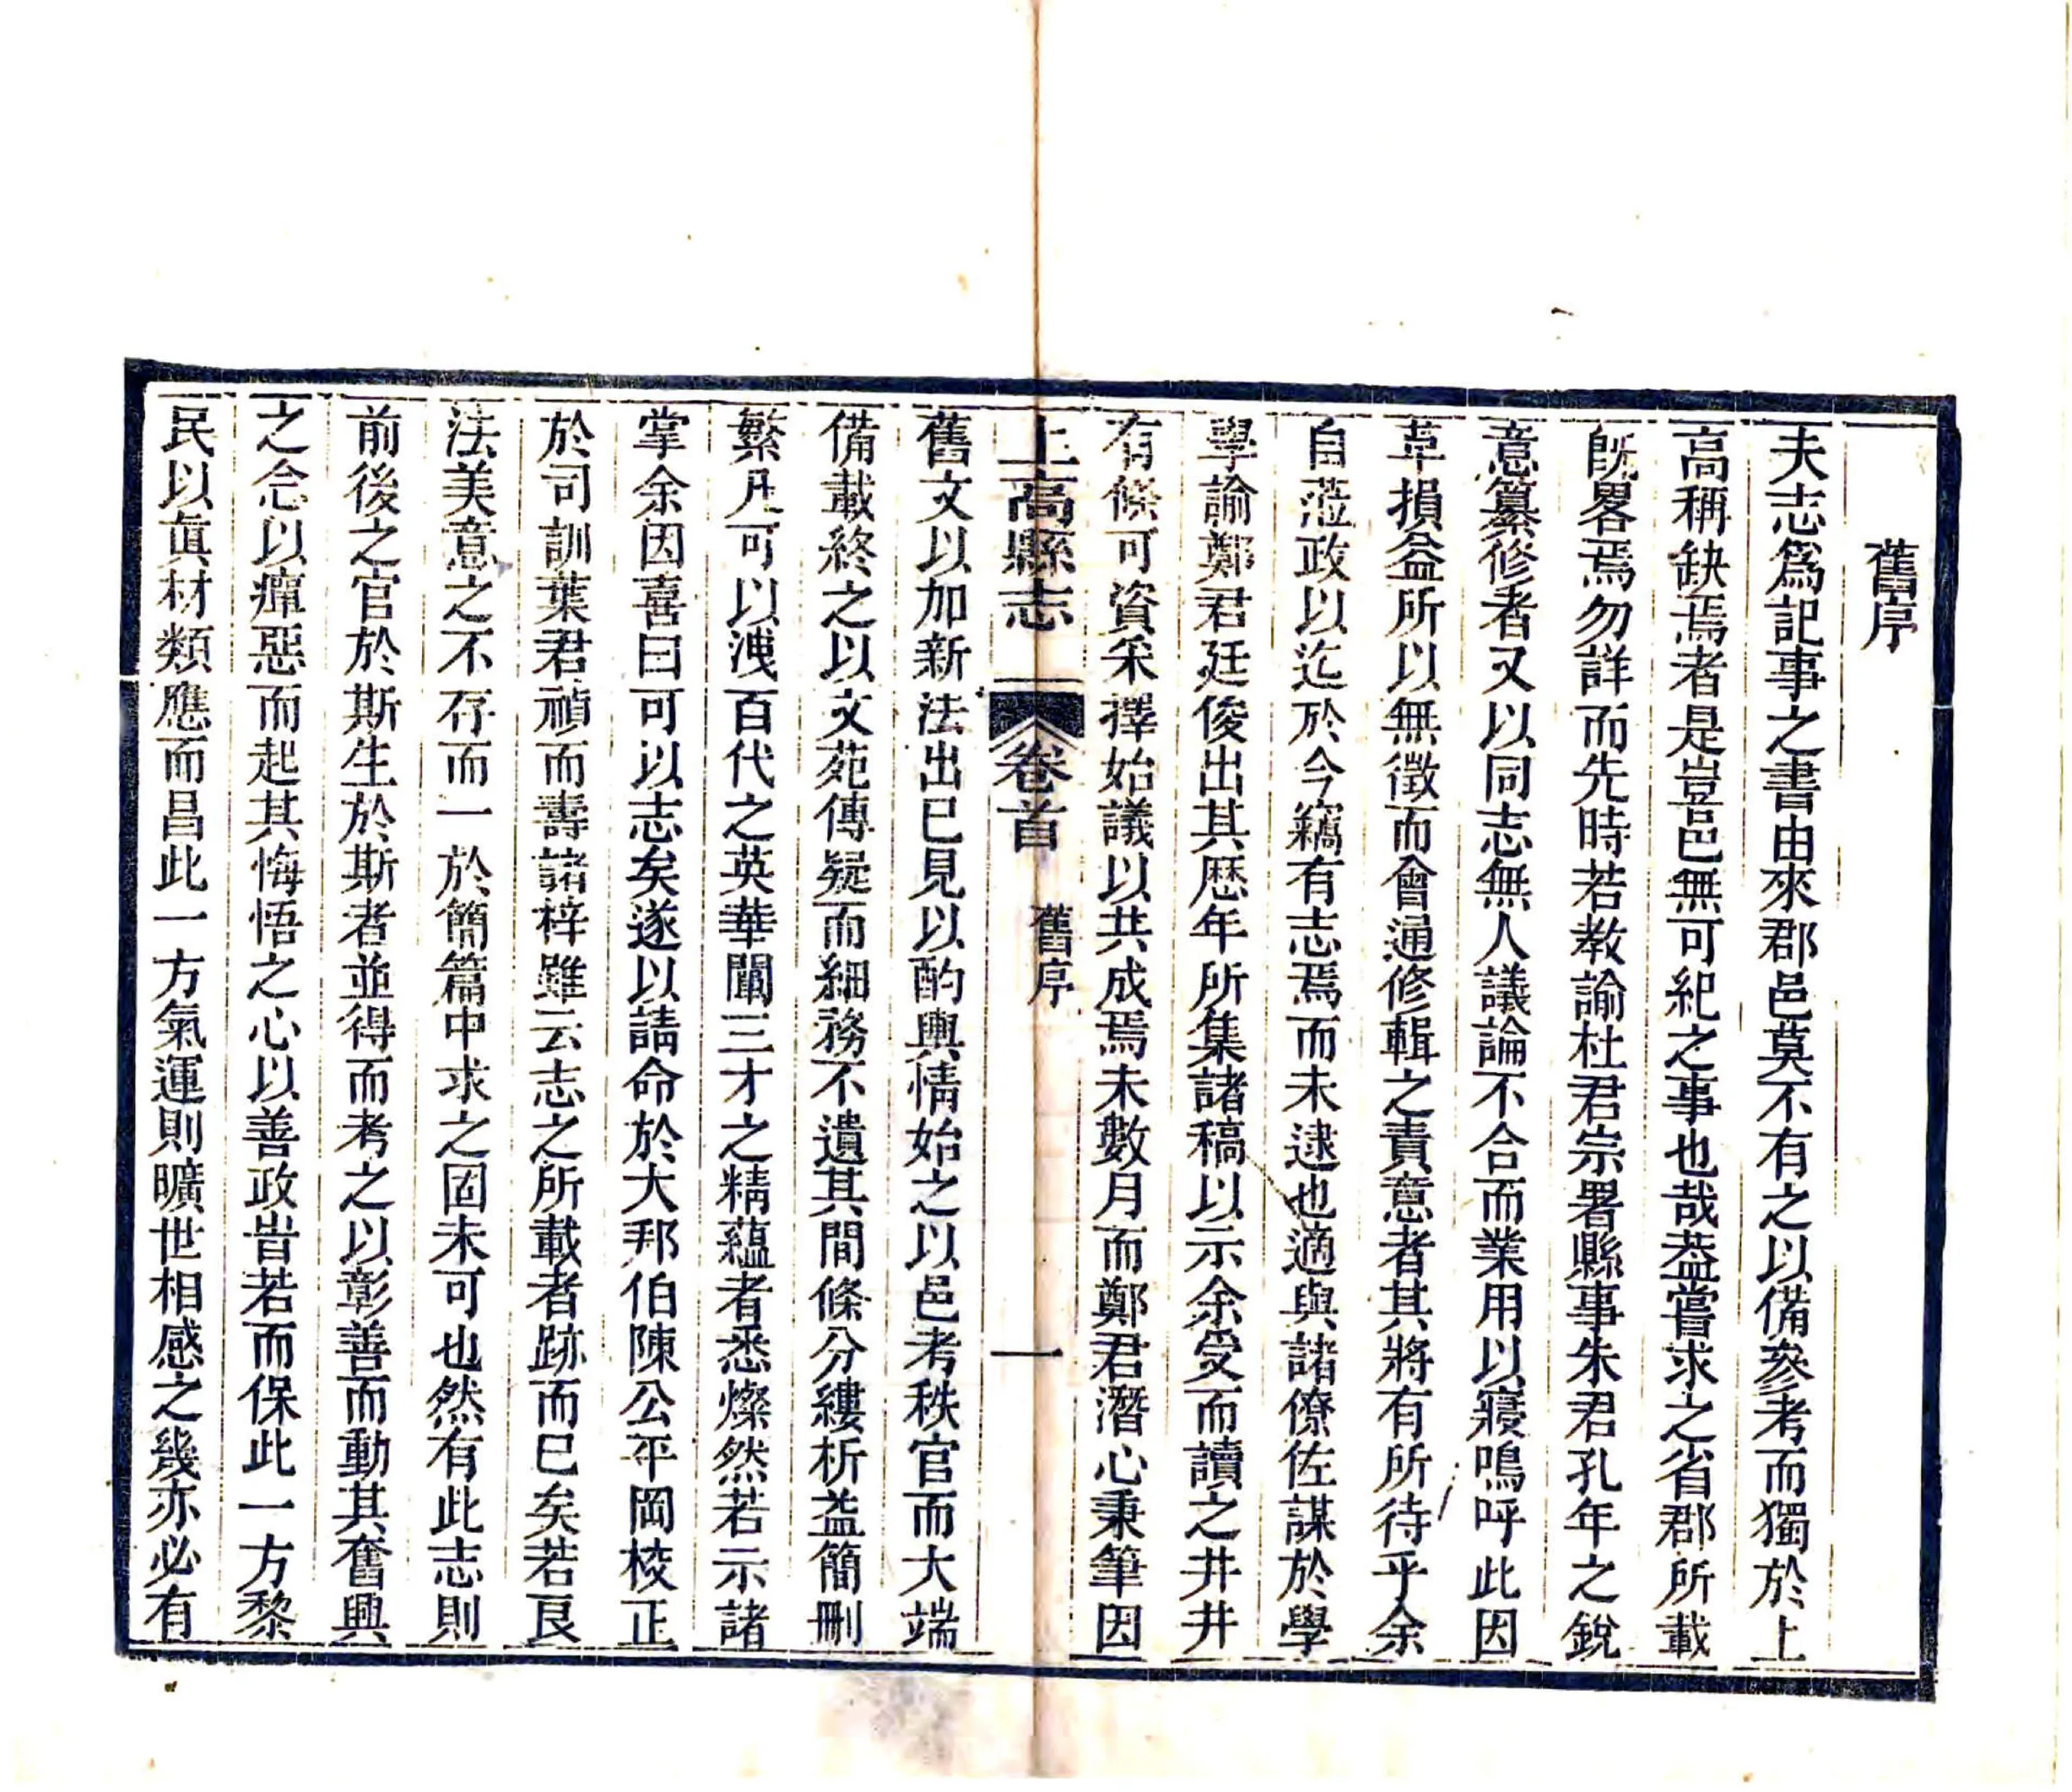 舊序
夫志爲記事之書由來郡邑莫不有之以備參考而獨於上
高稱缺焉者是豈邑無可紀之事也哉葢嘗求之省郡所載
既畧焉勿詳而先時若教諭杜君宗署縣事朱君孔年之銳
意纂修者又以同志無人議論不合而業用以寢嗚呼此因
革損益所以無徵而會通修輯之責意者其將有所待乎余
自蒞政以迄於今竊有志焉而未逮也適與諸僚佐謀於學
學諭鄭君廷俊出其歷年所集諸稿以示余受而讀之井井
有條可資采擇始議以共成焉未數月而鄭君潛心秉筆因
上高縣志 卷首 舊序 一
舊文以加新法出已見以酌輿情始之以邑考秩官而大端
備載終之以文苑傳疑而細務不遺其間條分縷析益簡刪
繁凡可以洩百代之英華闡三才之精蘊者悉燦然若示諸
掌余因喜曰可以志矣遂以請命於大邦伯陳公平岡校正
於司訓葉君禎而壽諸梓雖云志之所載者跡而已矣若艮
法美意之不存而一於簡篇中求之固未可也然有此志則
前後之官於斯生於斯者並得而考之以彰善而動其奮興
之念以癉惡而起其悔悟之心以善政旹若而保此一方黎
民以眞材類應而昌此一方氣運則曠世相感之幾亦必有